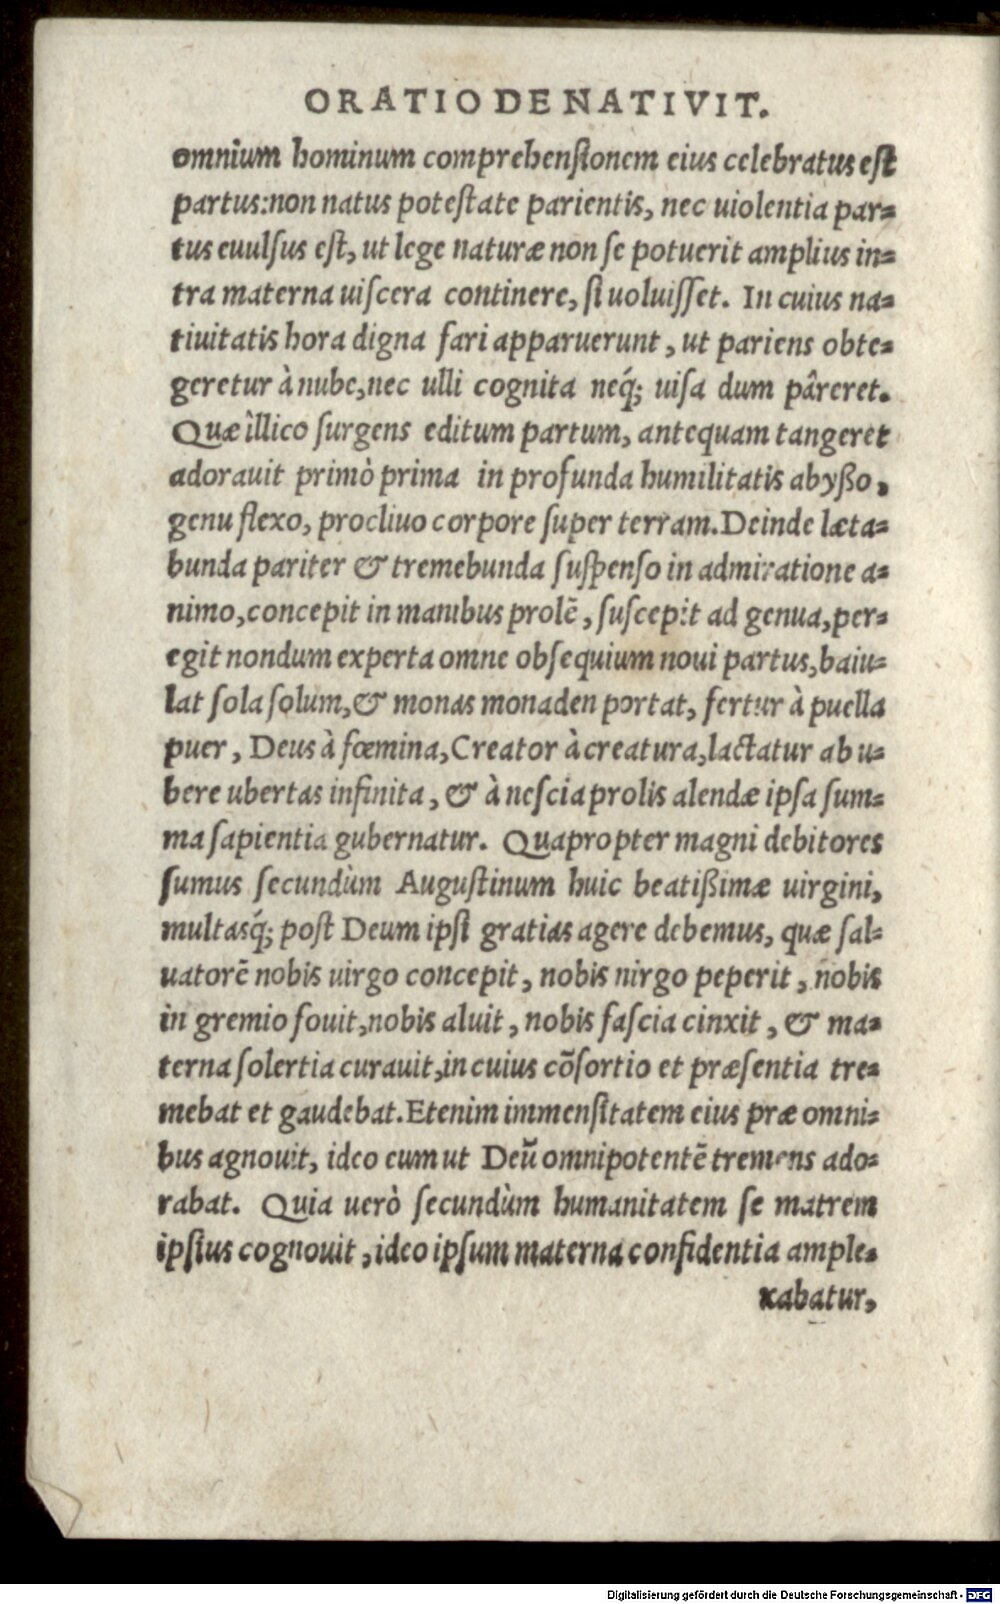 ORATIO DE NATIVIT.
omnium hominum comprehensionem eius celebratus est
partus:non natus potestate parientis, nec uiolentia par=
tus euulsus est, ut lege naturæ non se potuerit amplius in=
tra materna uiscera continere, si uoluisset. In cuius na=
tiuitatis hora digna fari apparuerunt, ut pariens obte=
geretur à nube,nec ulli cognita neq́; uisa dum pâreret.
Quæ îllico surgens editum partum, antequam tangeret
adorauit primò prima in profunda humilitatis abyßo,
genu flexo, procliuo corpore super terram.Deinde læta=
bunda pariter & tremebunda suspenso in admiratione a=
nimo,concepit in manibus prolē, suscepit ad genua,per=
egit nondum experta omne obsequium noui partus,baiu=
lat sola solum,& monas monaden portat, fertur à puella
puer, Deus à fœmina,Creator à creatura,lactatur ab u=
bere ubertas infinita, & à nescia prolis alendæ ipsa sum=
ma sapientia gubernatur. Quapropter magni debitores
sumus secundùm Augustinum huic beatißimæ uirgini,
multasq́; post Deum ipsi gratias agere debemus, quæ sal=
uatorē nobis uirgo concepit, nobis nirgo peperit, nobis
in gremio fouit,nobis aluit, nobis fascia cinxit, & ma=
terna solertia curauit,in cuius cōsortio et præsentia tre=
mebat et gaudebat.Etenim immensitatem eius præ omni=
bus agnouit, ideo eum ut Deū omnipotentē tremens ado=
rabat. Quia uerò secundùm humanitatem se matrem
ipsius cognouit, ideo ipsum materna confidentia ample=
xabatur,
Digitalisierung gefördert durch die Deutsche Forschungsgemeinschaft - DFG